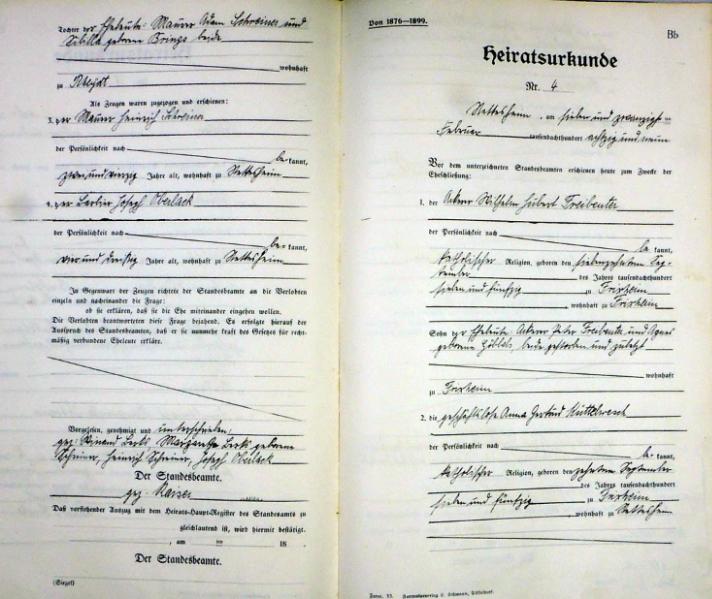 Tochter der Eheleute: Maurer Adam Schreiner und
Sibilla geborene Brings beide
wohnhaft
zu Rheydt
Als Zeugen waren zugezogen und erschienen:
3. der Maurer Heinrich Schreiner
der Persönlichkeit nach
be kannt,
zwei und vierzig Jahre alt, wohnhaft zu Nettesheim
4. der Barbier Joseph Oberlack
der Persönlichkeit nach
be kannt,
vier und dreißig Jahre alt, wohnhaft zu Nettesheim
In Gegenwart der Zeugen richtete der Standesbeamte an die Verlobten
einzeln und nacheinander die Frage:
ob sie erklären, daß sie die Ehe miteinander eingehen wollen.
Die Verlobten beantworteten diese Frage bejahend. Es erfolgte hierauf der
Ausspruch des Standesbeamten, daß er sie nunmehr kraft des Gesetzes für recht-
mäßig verbundene Eheleute erkläre.
Vorgelesen, genehmigt und unterschrieben:
gez: Margaretha geborene
Schreiner, Heinrich Schreiner, Joseph Oberlack
Der Standesbeamte.
gez.
Daß vorstehender Auszug mit dem Heirats-Haupt-Register des Standesamts zu
gleichlautend ist, wird hiermit bestätigt.
, am ten 18
Der Standesbeamte.
(Siegel)
Von 1876—1899.
Bb
Heiratsurkunde
Nr. 4
Nettesheim, am sieben und zwanzigsten
Februar tausendachthundert achtzig und neun
Vor dem unterzeichneten Standesbeamten erschienen heute zum Zwecke der
Eheschließung:
1. der Ackerer Wilhelm Hubert Freibeuter
der Persönlichkeit nach
be kannt,
katholischer Religion, geboren den siebenzehnten Sep-
tember des Jahres tausendachthundert
sieben und fünfzig zu Frixheim
, wohnhaft zu Frixheim
Sohn der Eheleute Ackerer Peter Freibeuter und Agnes
geborene beide gestorben und zuletzt
wohnhaft
zu Frixheim
2. die geschäftslose Anna Gertrud
der Persönlichkeit nach
be kannt,
katholischer Religion, geboren den zehnten September
des Jahres tausendachthundert
sieben und fünfzig zu
, wohnhaft zu Nettesheim